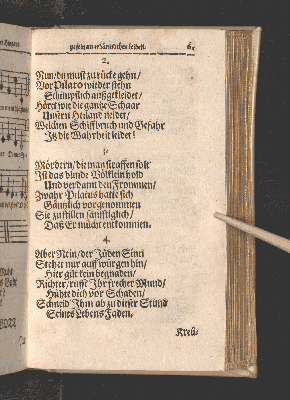 2.
Nun/du must zurücke gehn/
Vor Pilato wieder stehn
Schimpflich außgekleidet/
Höret wie die gantze Schaar
Unsern Heiland neidet/
Welchen Schiffbruch und Gefahr
Itz die Wahrheit leidet!
3.
Mördern/die man straffen solt
Ist das blinde Völcklein hold
Und verdamt den Frommen/
Zwahr Pilatus hatte sich
Gäntzlich vorgenommen
Sie zu stillen sänfftiglich/
Daß Er möcht entkommen.
4.
Aber Nein/der Jüden Sinn
Stehet nur auff würgen hin/
Hier gilt kein begnaden/
Richter/rufft Ihr frecher Mund/
Hühte dich vor Schaden/
Schneid Ihm ab zu dieser Stund
Seines Lebens Faden.
Kreu-